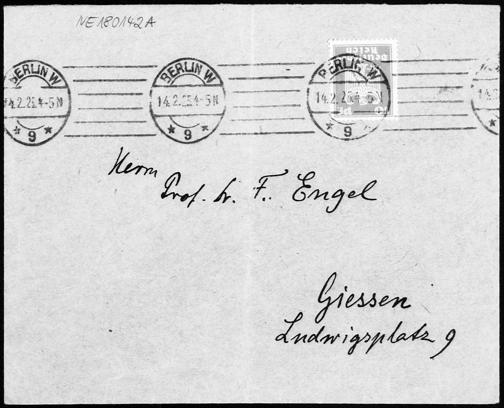 NE180142A
BERLIN W
14.2.25.4-5N
* 9 *
BERLIN W
14.2.25.4-5N
* 9 *
BERLIN W
14.2.25.4-5N
* 9 *
Deutsches
Reich
Herrn
Prof. Dr. F. Engel
Giessen
Ludwigsplatz 9